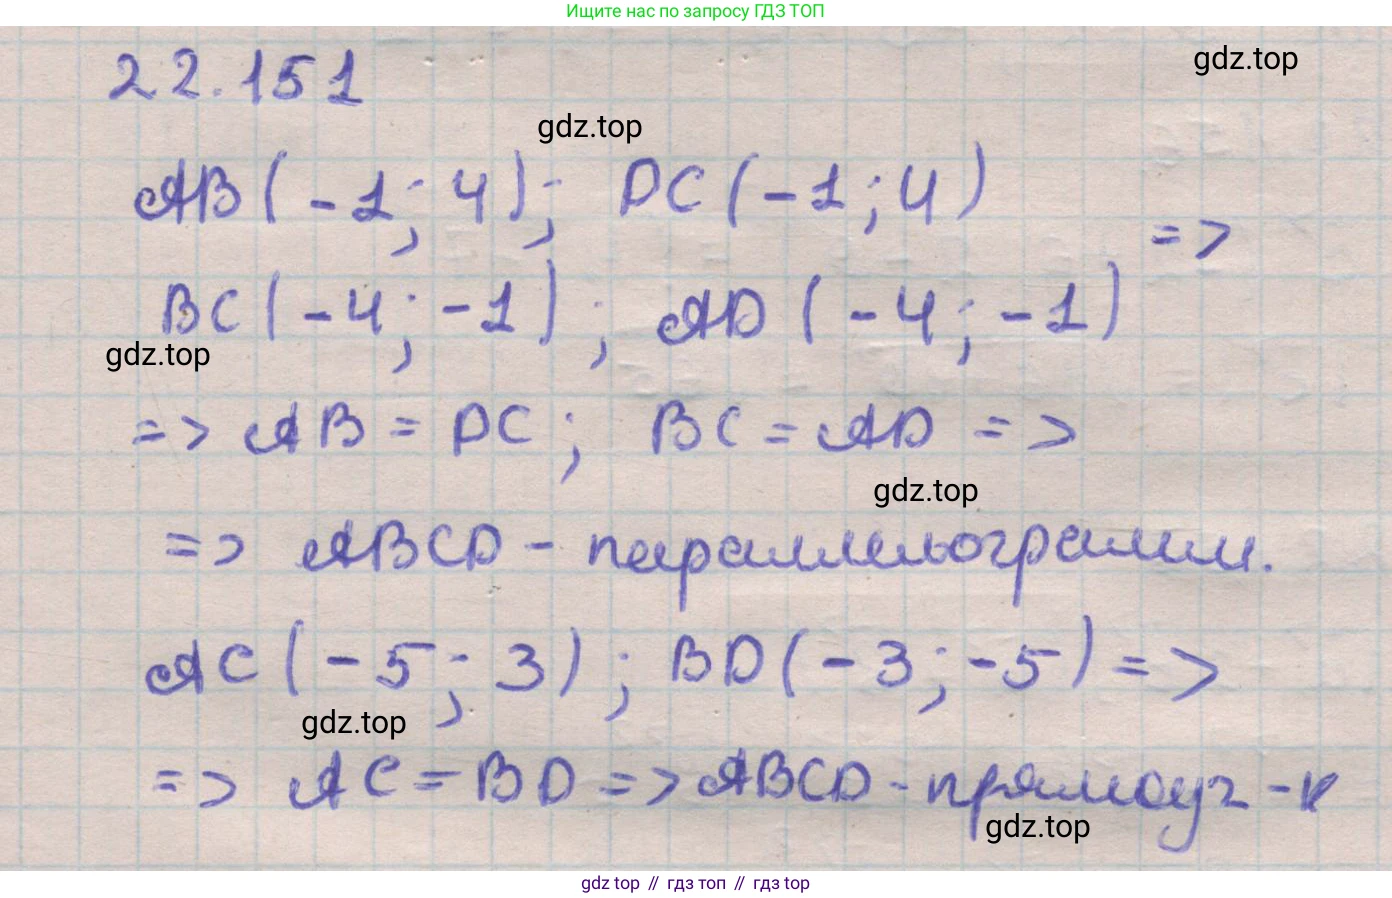 Ищите нас по запросу ГДЗ ТОП
22.151
gdz.top
gdz.top
AB(-1; 4); DC(-1; 4)
=>
BC(-4; -1); AD(-4; -1)
gdz.top
=> AB = DC; BC = AD =>
gdz.top
=> ABCD - параллельограмм.
AC(-5; 3); BD(-3; -5) =>
gdz.top
=> AC = BD => ABCD - прямоуг-к
gdz.top
gdz top // гдз топ // гдз top